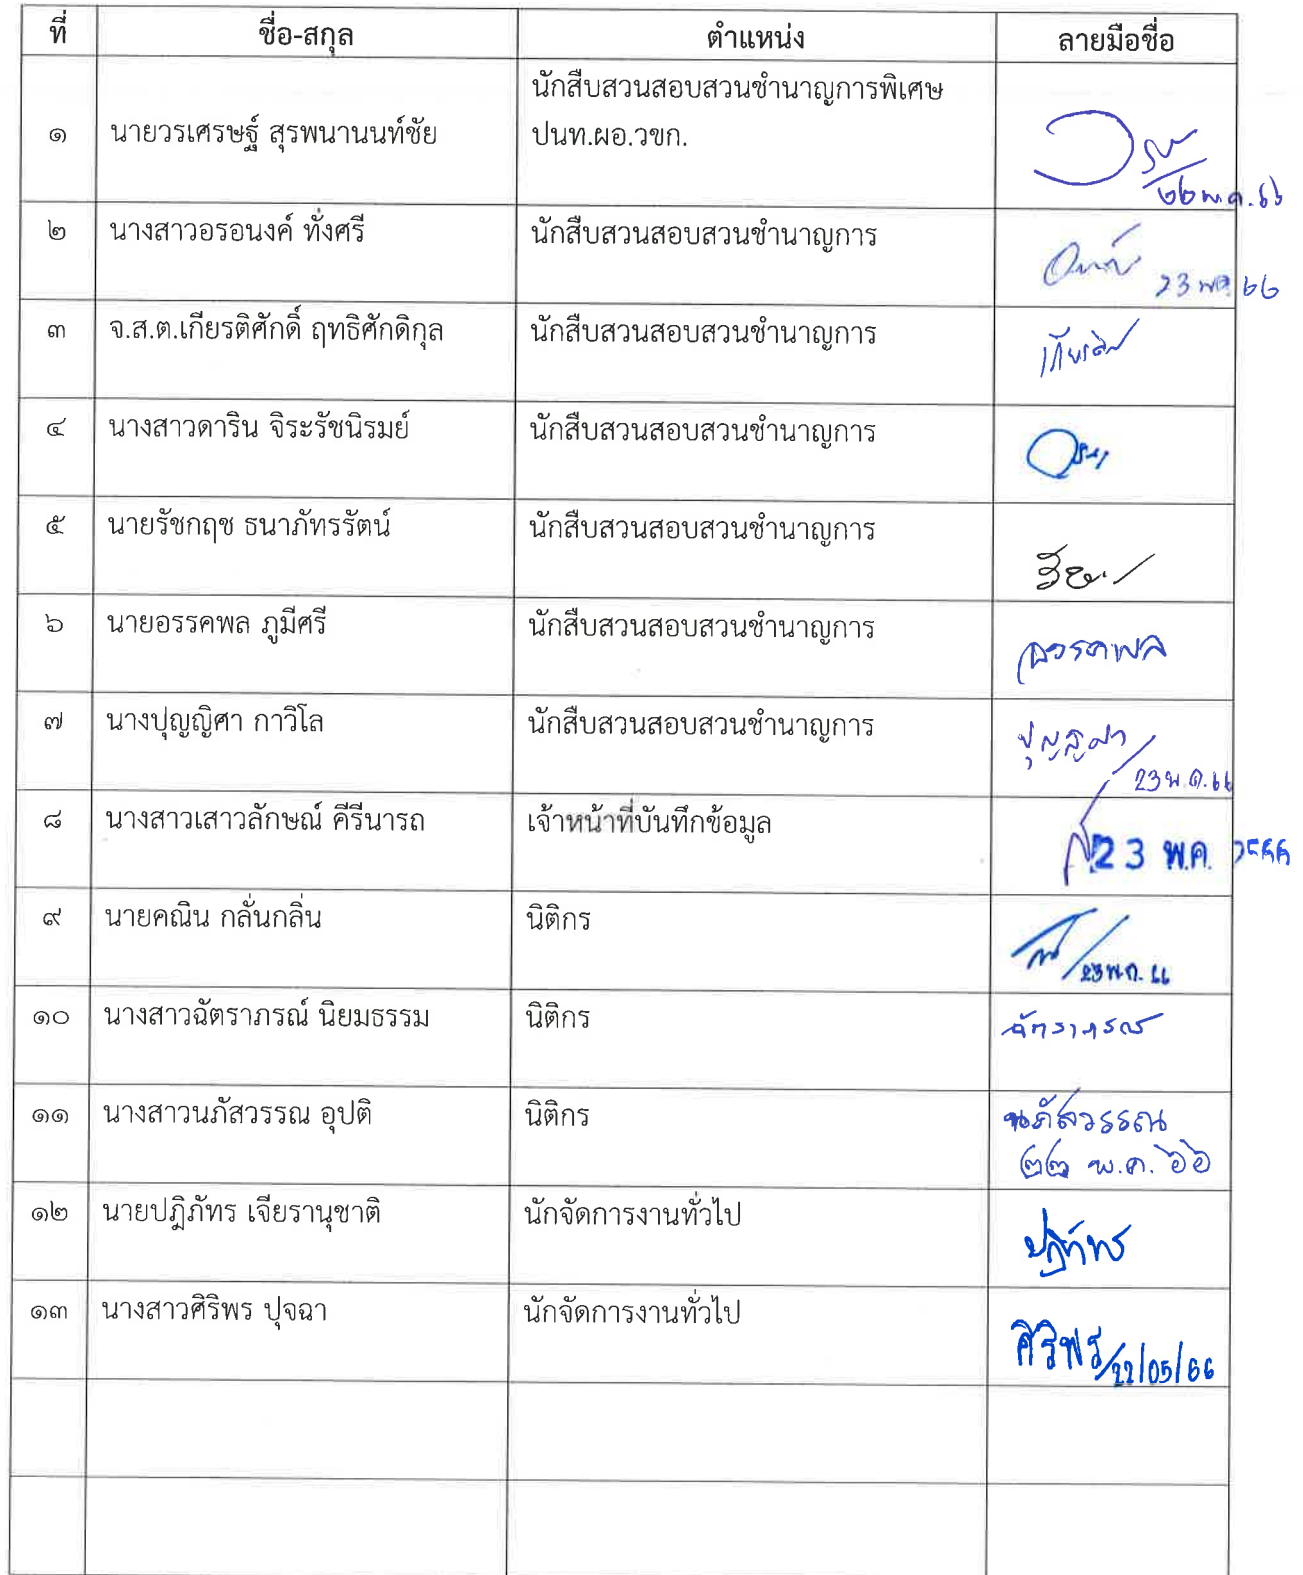 ที่ ชื่อ-สกุล ตำแหน่ง ลายมือชื่อ
นักสืบสวนสอบสวนชำนาญการพิเศษ
๑ นายวรเศรษฐ์ สุรพนานนท์ชัย ปนท.ผอ.วขก.
๒๒ พ.ค. ๖๖
๒ นางสาวอรอนงค์ ทั่งศรี นักสืบสวนสอบสวนชำนาญการ
23 พค ๖๖
๓ จ.ส.ต.เกียรติศักดิ์ ฤทธิศักดิกุล นักสืบสวนสอบสวนชำนาญการ
๔ นางสาวดาริน จิระรัชนิรมย์ นักสืบสวนสอบสวนชำนาญการ
๕ นายรัชกฤช ธนาภัทรรัตน์ นักสืบสวนสอบสวนชำนาญการ
๖ นายอรรคพล ภูมีศรี นักสืบสวนสอบสวนชำนาญการ
อรรคพล
๗ นางปุญญิศา กาวิโล นักสืบสวนสอบสวนชำนาญการ
23 พ.ค. 66
๘ นางสาวเสาวลักษณ์ คีรีนารถ เจ้าหน้าที่บันทึกข้อมูล
23 พ.ค. 2566
๙ นายคณิน กลั่นกลิ่น นิติกร
23 พ.ค. 66
๑๐ นางสาวฉัตราภรณ์ นิยมธรรม นิติกร
ฉัตราภรณ์
๑๑ นางสาวนภัสวรรณ อุปติ นิติกร
นภัสวรรณ
๒๒ พ.ค. ๖๖
๑๒ นายปฏิภัทร เจียรานุชาติ นักจัดการงานทั่วไป
ปฏิภัทร
๑๓ นางสาวศิริพร ปุจฉา นักจัดการงานทั่วไป
ศิริพร/22/05/66